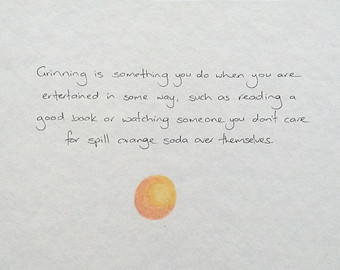 Grinning is something you do when you are
entertained in some way, such as reading a
good book or watching someone you don't care
for spill orange soda over themselves.